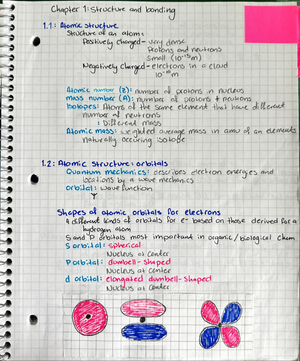 Chapter 1: Structure and bonding
1.1: Atomic structure
Structure of an atom:
Positively charged - very dense
Protons and neutrons
Small (10⁻¹⁵m)
Negatively charged - electrons in a cloud
10⁻¹⁰m
Atomic number (Z): number of protons in nucleus
mass number (A): number of protons + neutrons
Isotopes: Atoms of the same element that have different
number of neutrons
: Different mass
Atomic mass: weighted average mass in amu of an elements
naturally occuring isotope
1.2: Atomic Structure: orbitals
Quantum mechanics: describes electron energies and
locations by a wave mechanics
orbital: wave function
Ψ
Shapes of atomic orbitals for electrons
4 different kinds of orbitals for e- based on those derived for a
hydrogen atom
S and P orbitals most important in organic/biological chem
S orbital: spherical
Nucleus at center
P orbital: dumbell-shaped
Nucleus at center
d orbital: elongated dumbell-shaped
Nucleus at center